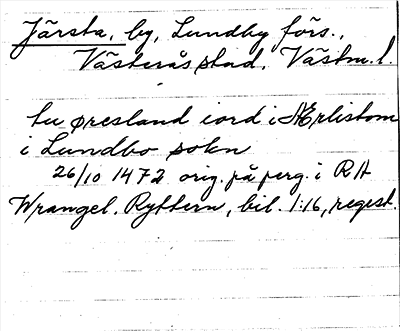 Järsta, by, Lundby förs.,
Västerås stad, Västm. l.
tu øresland iord i Ærlistom
i Lundbo sokn
26/10 1472 orig. på perg. i RA
Wrangel. Ryttern, bil. 1:16, regest.